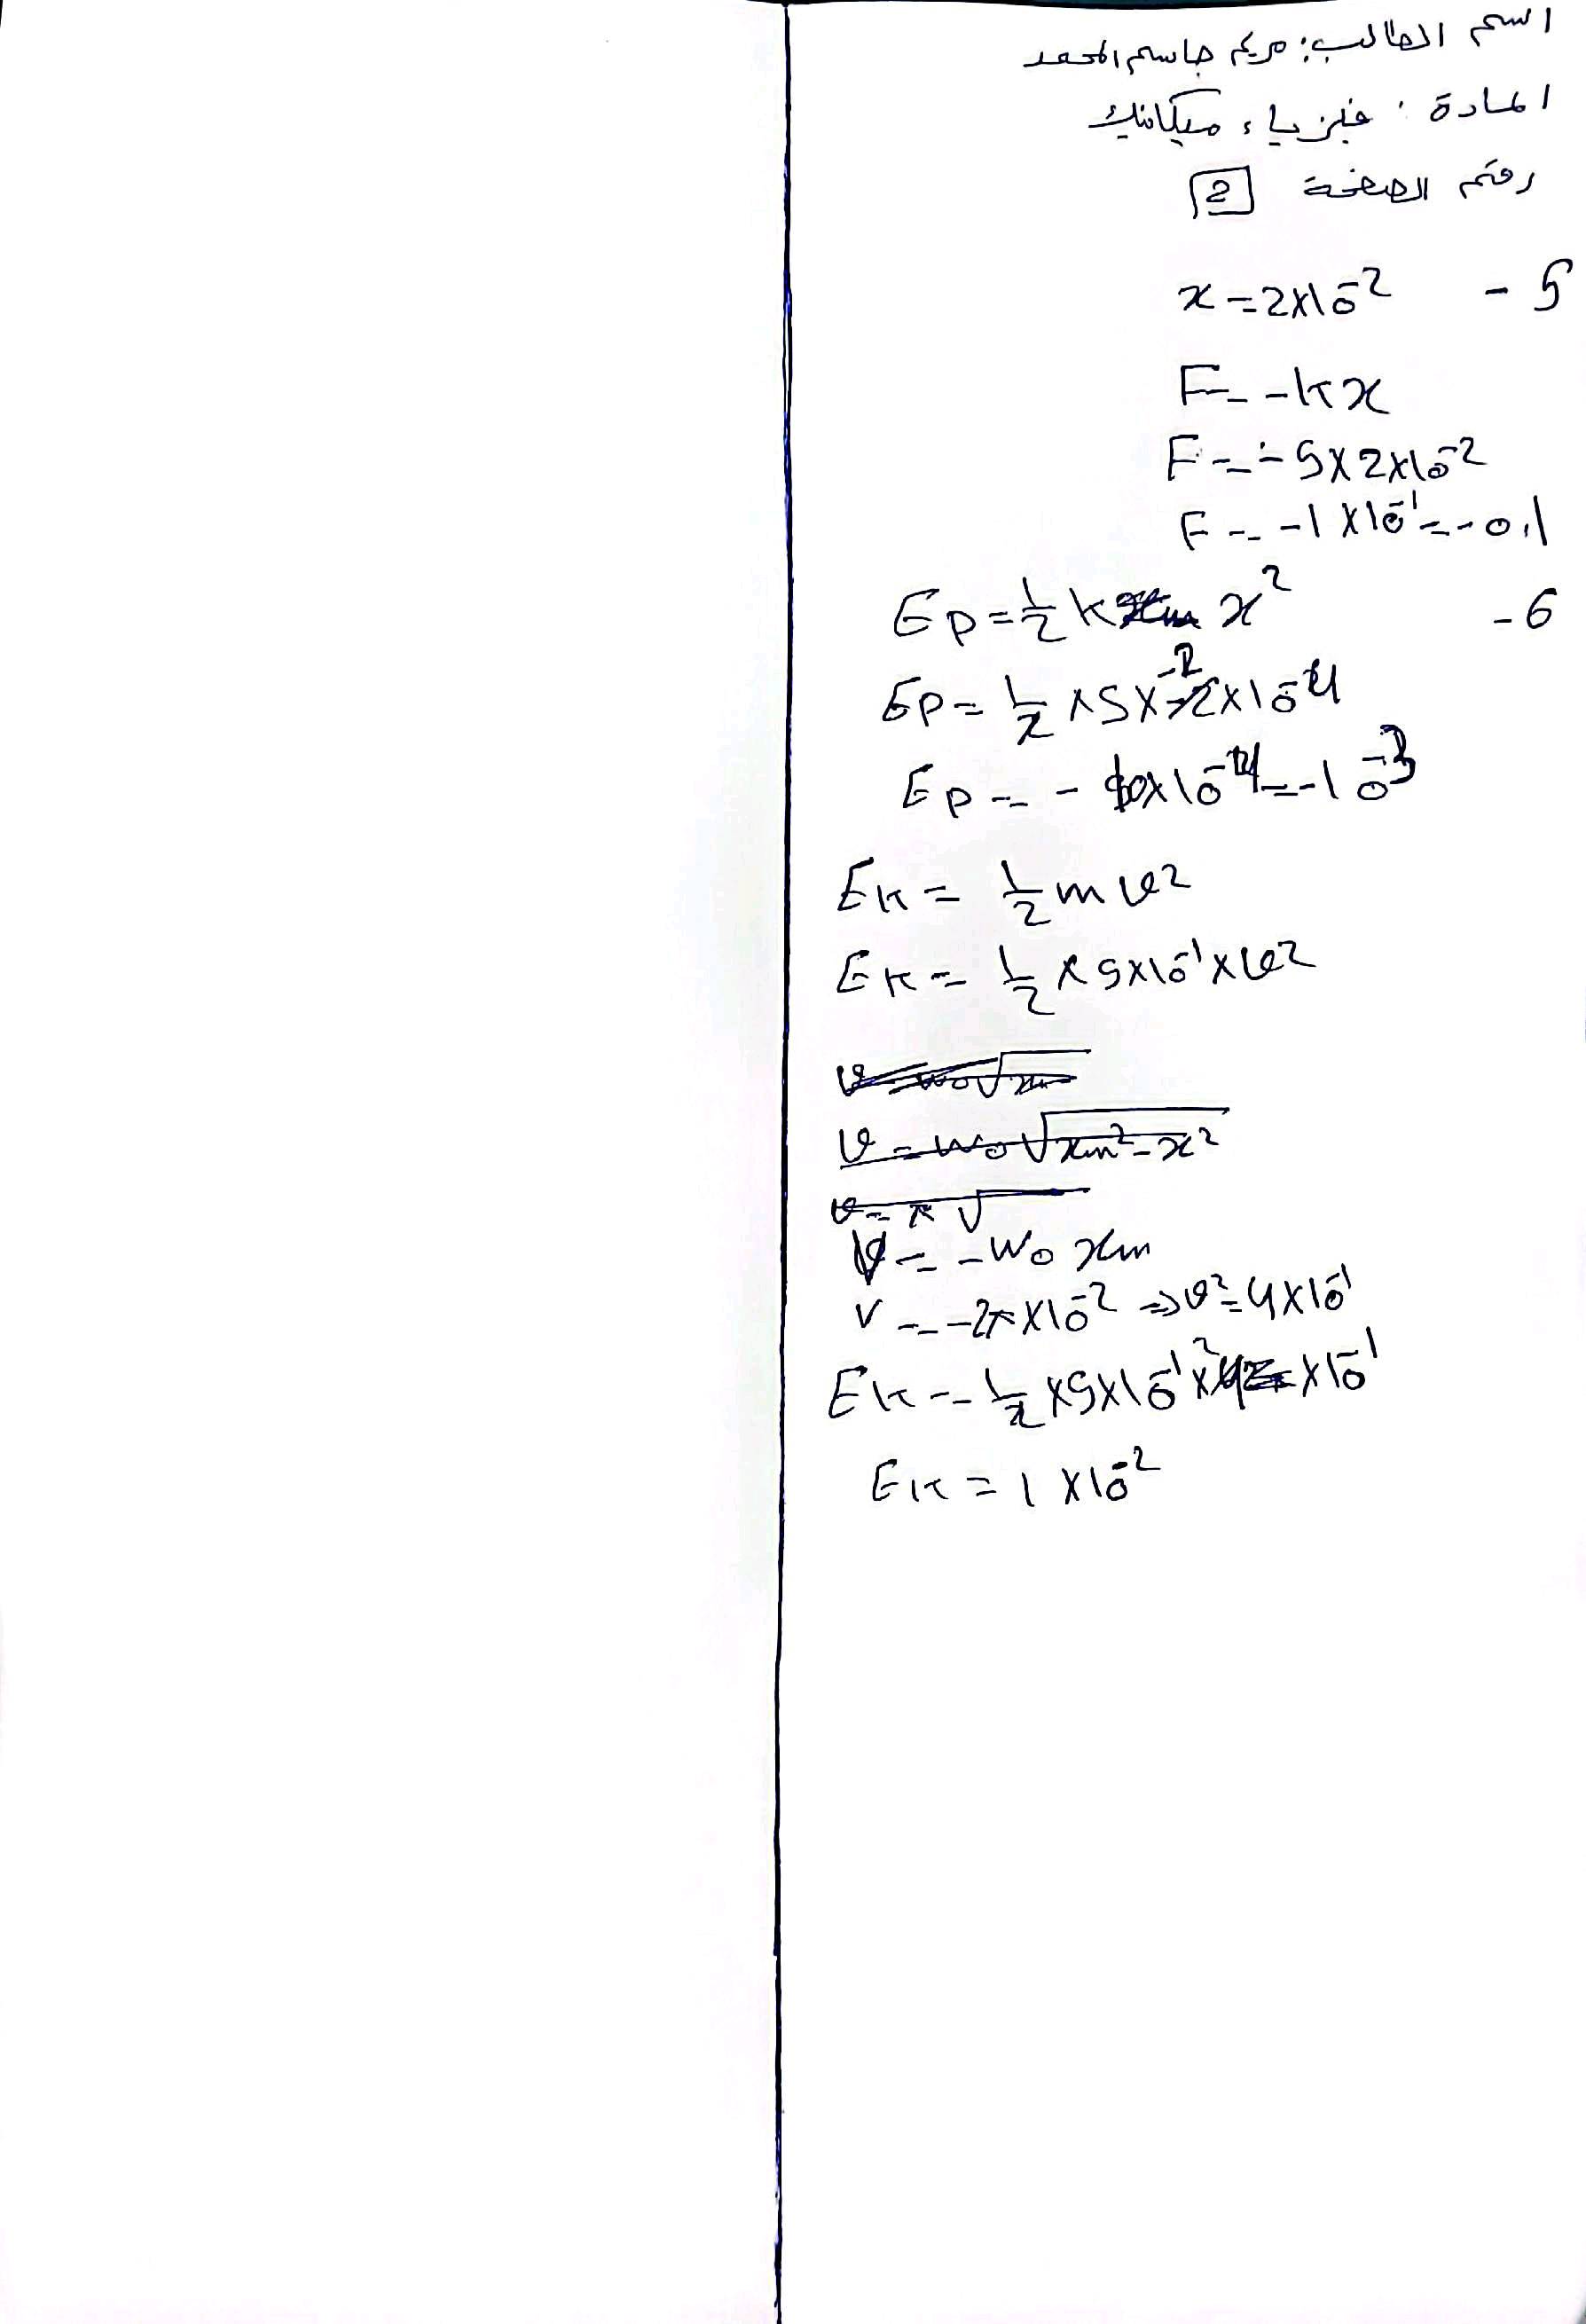 اسم الطالب: مريم جاسم المحمد
المادة: فيزياء ميكانيك
رقم الصفحة 2
5 - x = 2×10⁻²
F = -kx
F = -5×2×10⁻²
F = -1×10⁻¹ = -0,1
6 - Ep = ½ k x²
Ep = ½ × 5 × -2 × 10⁻⁴
Ep = - 10×10⁻⁴ = -10⁻³
Ek = ½ m v²
Ek = ½ × 5×10⁻¹ × v²
v = w₀√xm
v = w₀√xm² - x²
v = π√
v = -w₀ xm
v = -2π×10⁻² ⇒ v² = 4×10⁻¹
Ek = ½ ×5×10⁻¹ × 4 ×10⁻¹
Ek = 1 ×10⁻²